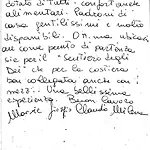 dotata di tutti i confort anche
alimentari. Padroni di
casa gentilissimi e molto
disponibili. Ottima ubicazi
one come punto di partenza
sia per il "Sentiero degli
Dei" che per la costiera
ben collegata anche con i
mezzi. Una bellissima
esperienza. Buon lavoro
Claudio